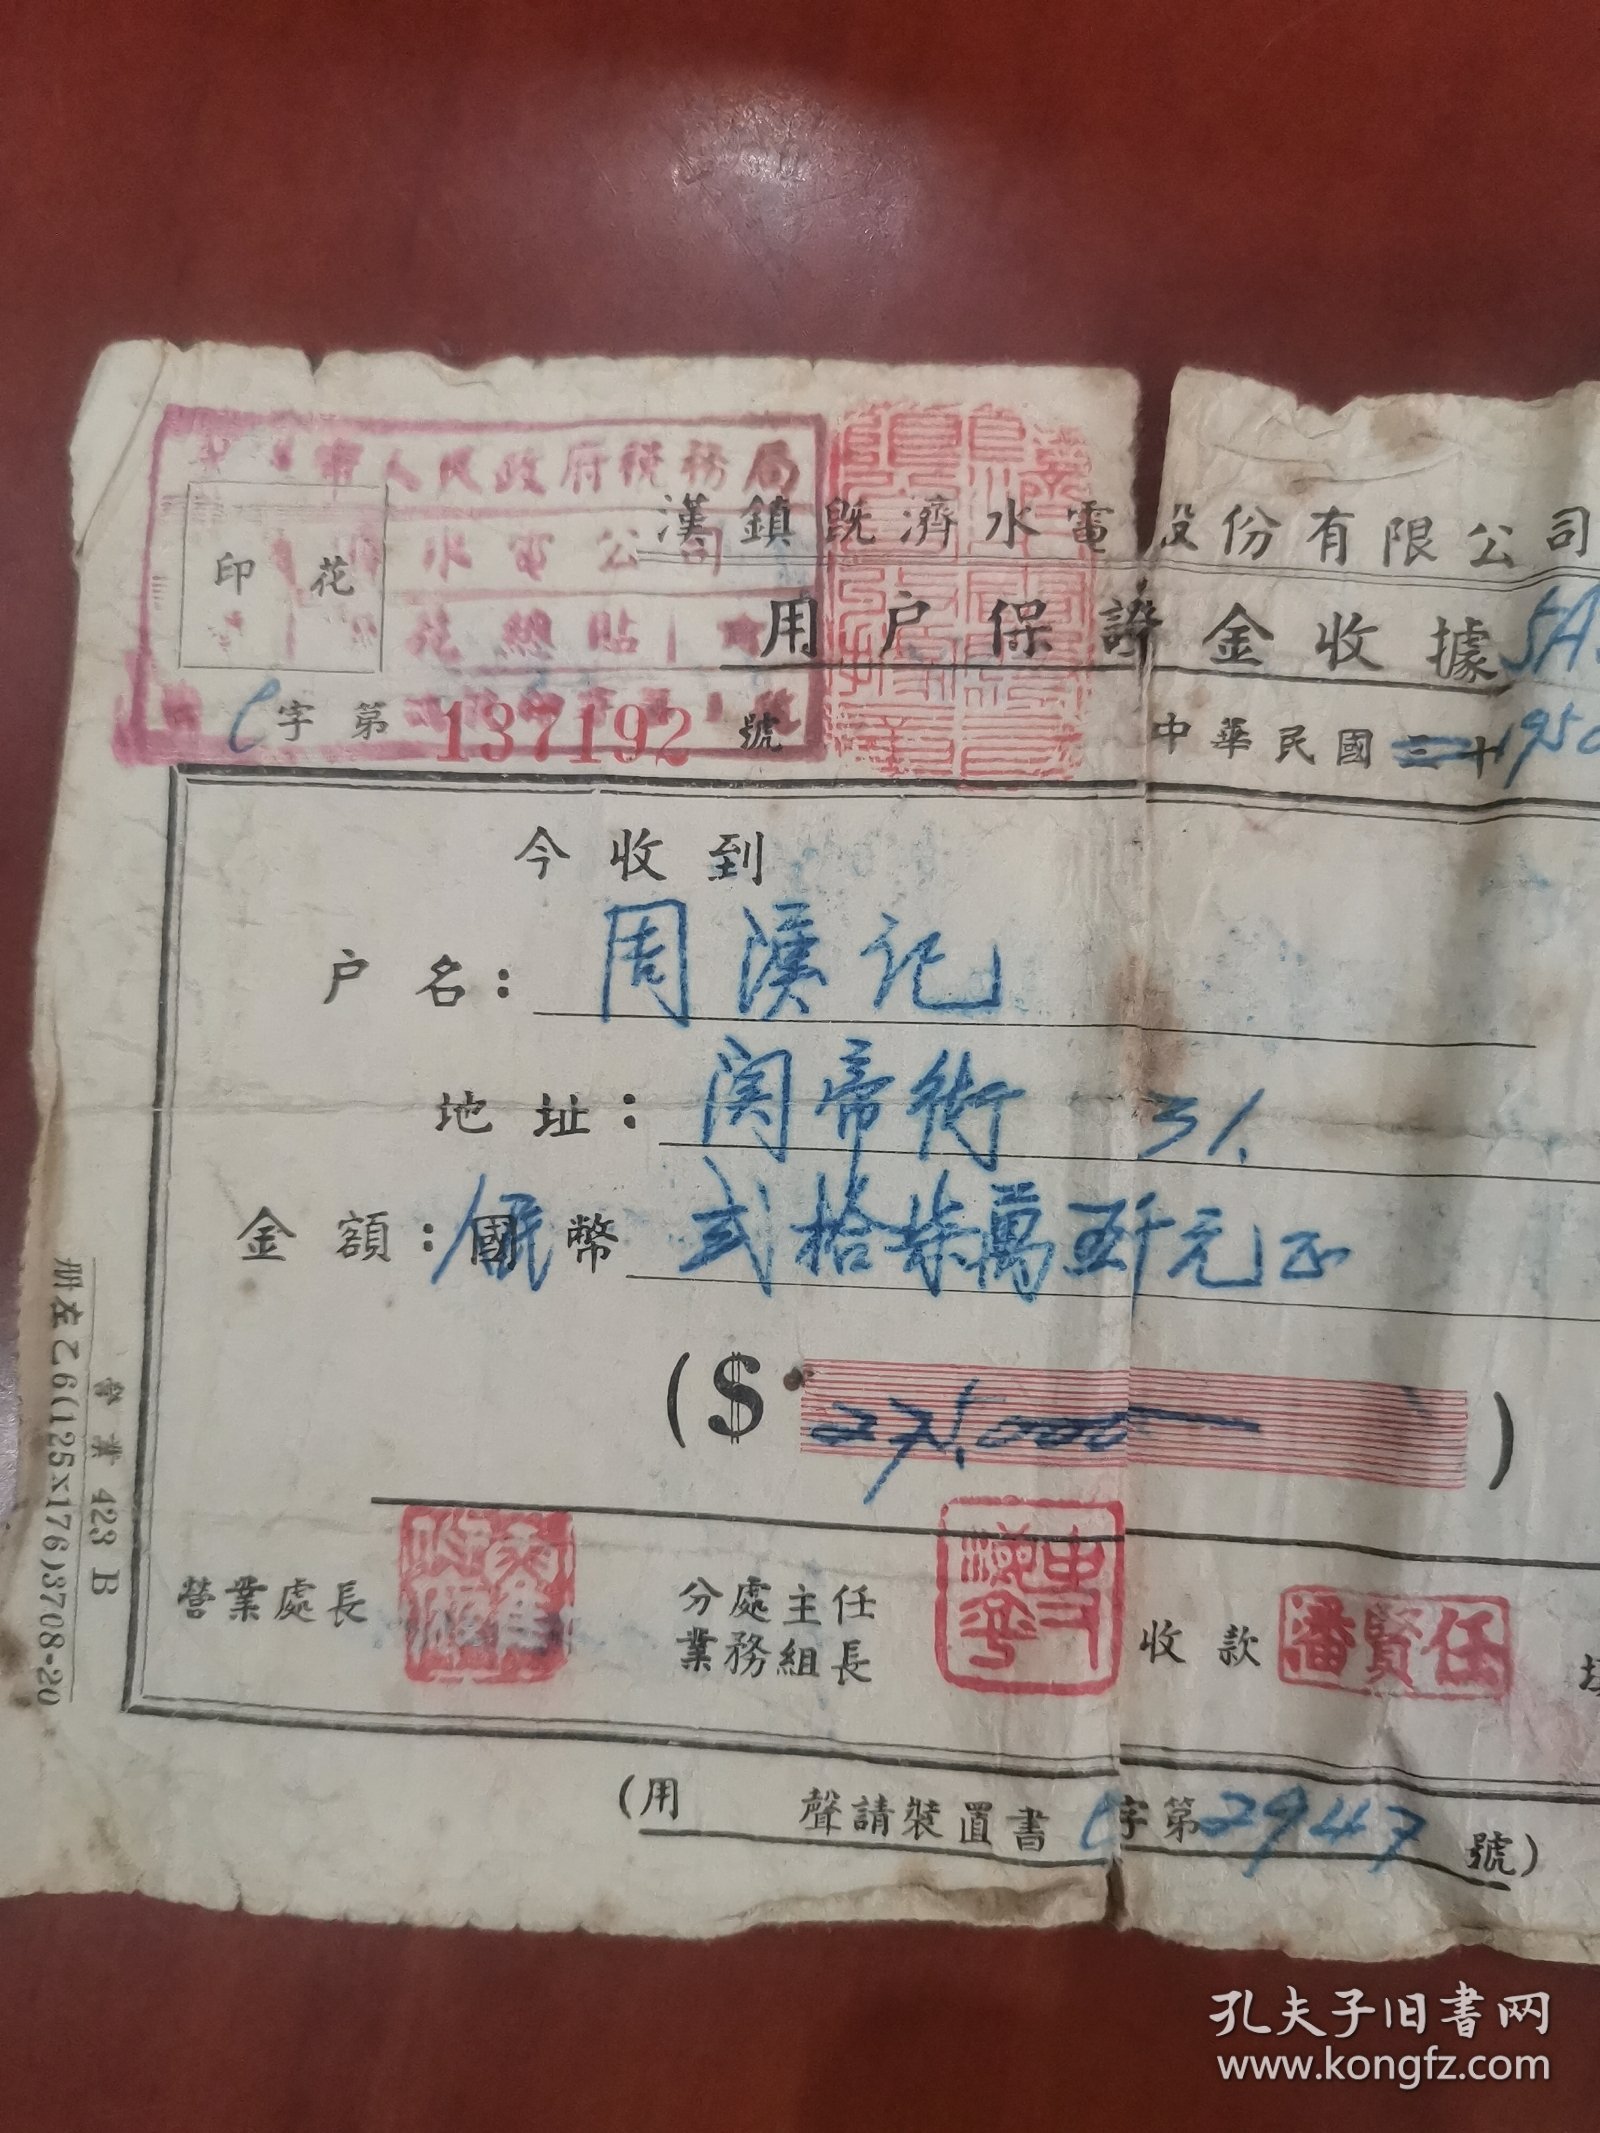 市人民政府税務局
水電公司
花總貼
印花
漢鎮既濟水電股份有限公司
用户保證金收據
C字第137192號
中華民國三十1950
今收到
户名：周漢记
地址：関帝街 31.
金額：人民國幣 弍拾柒萬伍仟元正
($ 275,000)
營業處長
分處主任
業務組長
收款 潘賢任
(用 聲請裝置書C字第2947號)
營業 423 B
乙6(125×176)3708-20
孔夫子旧书网
www.kongfz.com